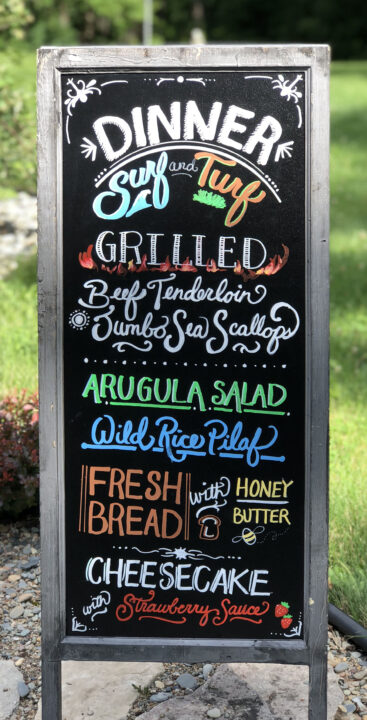 DINNER
Surf and Turf
GRILLED
Beef Tenderloin
Jumbo Sea Scallops
ARUGULA SALAD
Wild Rice Pilaf
FRESH BREAD with HONEY BUTTER
CHEESECAKE
with Strawberry Sauce